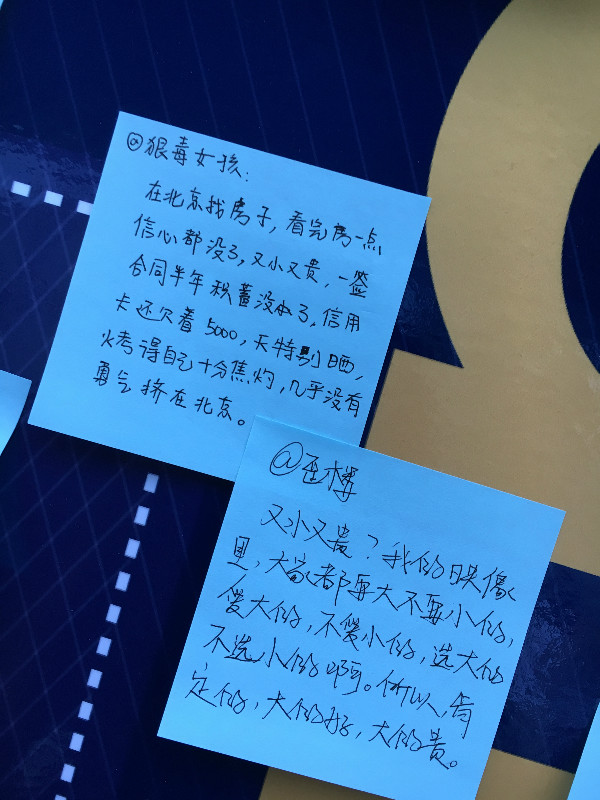 @狠毒女孩：
在北京找房子，看完房一点
信心都没了，又小又贵，一签
合同半年积蓄没了，信用
卡还欠着5000，天特别晒，
火烤得自己十分焦灼，几乎没有
勇气挤在北京。
@歪楼
又小又贵？我的映像
里，大家都要大不要小的，
爱大的，不爱小的，选大的
不选小的啊。所以，肯
定的，大的好，大的贵。